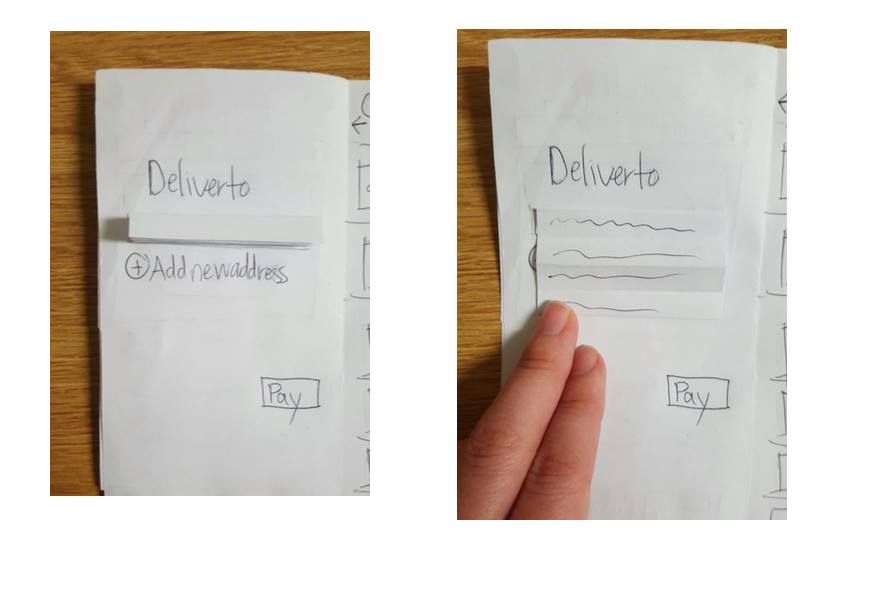 Deliver to
+ Add new address
Pay
Deliver to
Pay